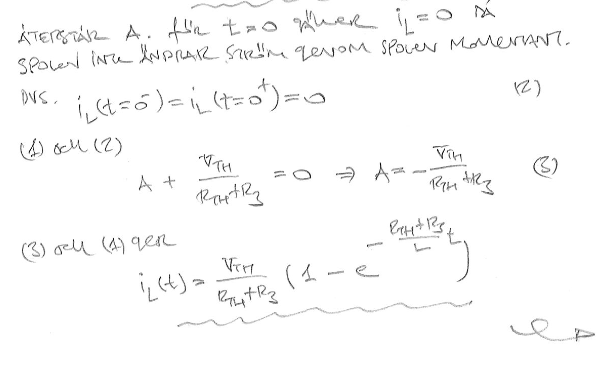 ÅTERSTÅR A. för t=0 gäller i_L=0 DÅ
SPOLEN INTE ÄNDRAR STRÖM genom SPOLEN MOMENTANT.
DVS. i_L(t=0⁻)=i_L(t=0⁺)=0 (2)
(1) och (2)
A + V_TH/(R_TH+R_3) = 0 ⇒ A = - V_TH/(R_TH+R_3) (3)
(3) och (1) ger
i_L(t) = V_TH/(R_TH+R_3) (1 - e^(-(R_TH+R_3)/L t))